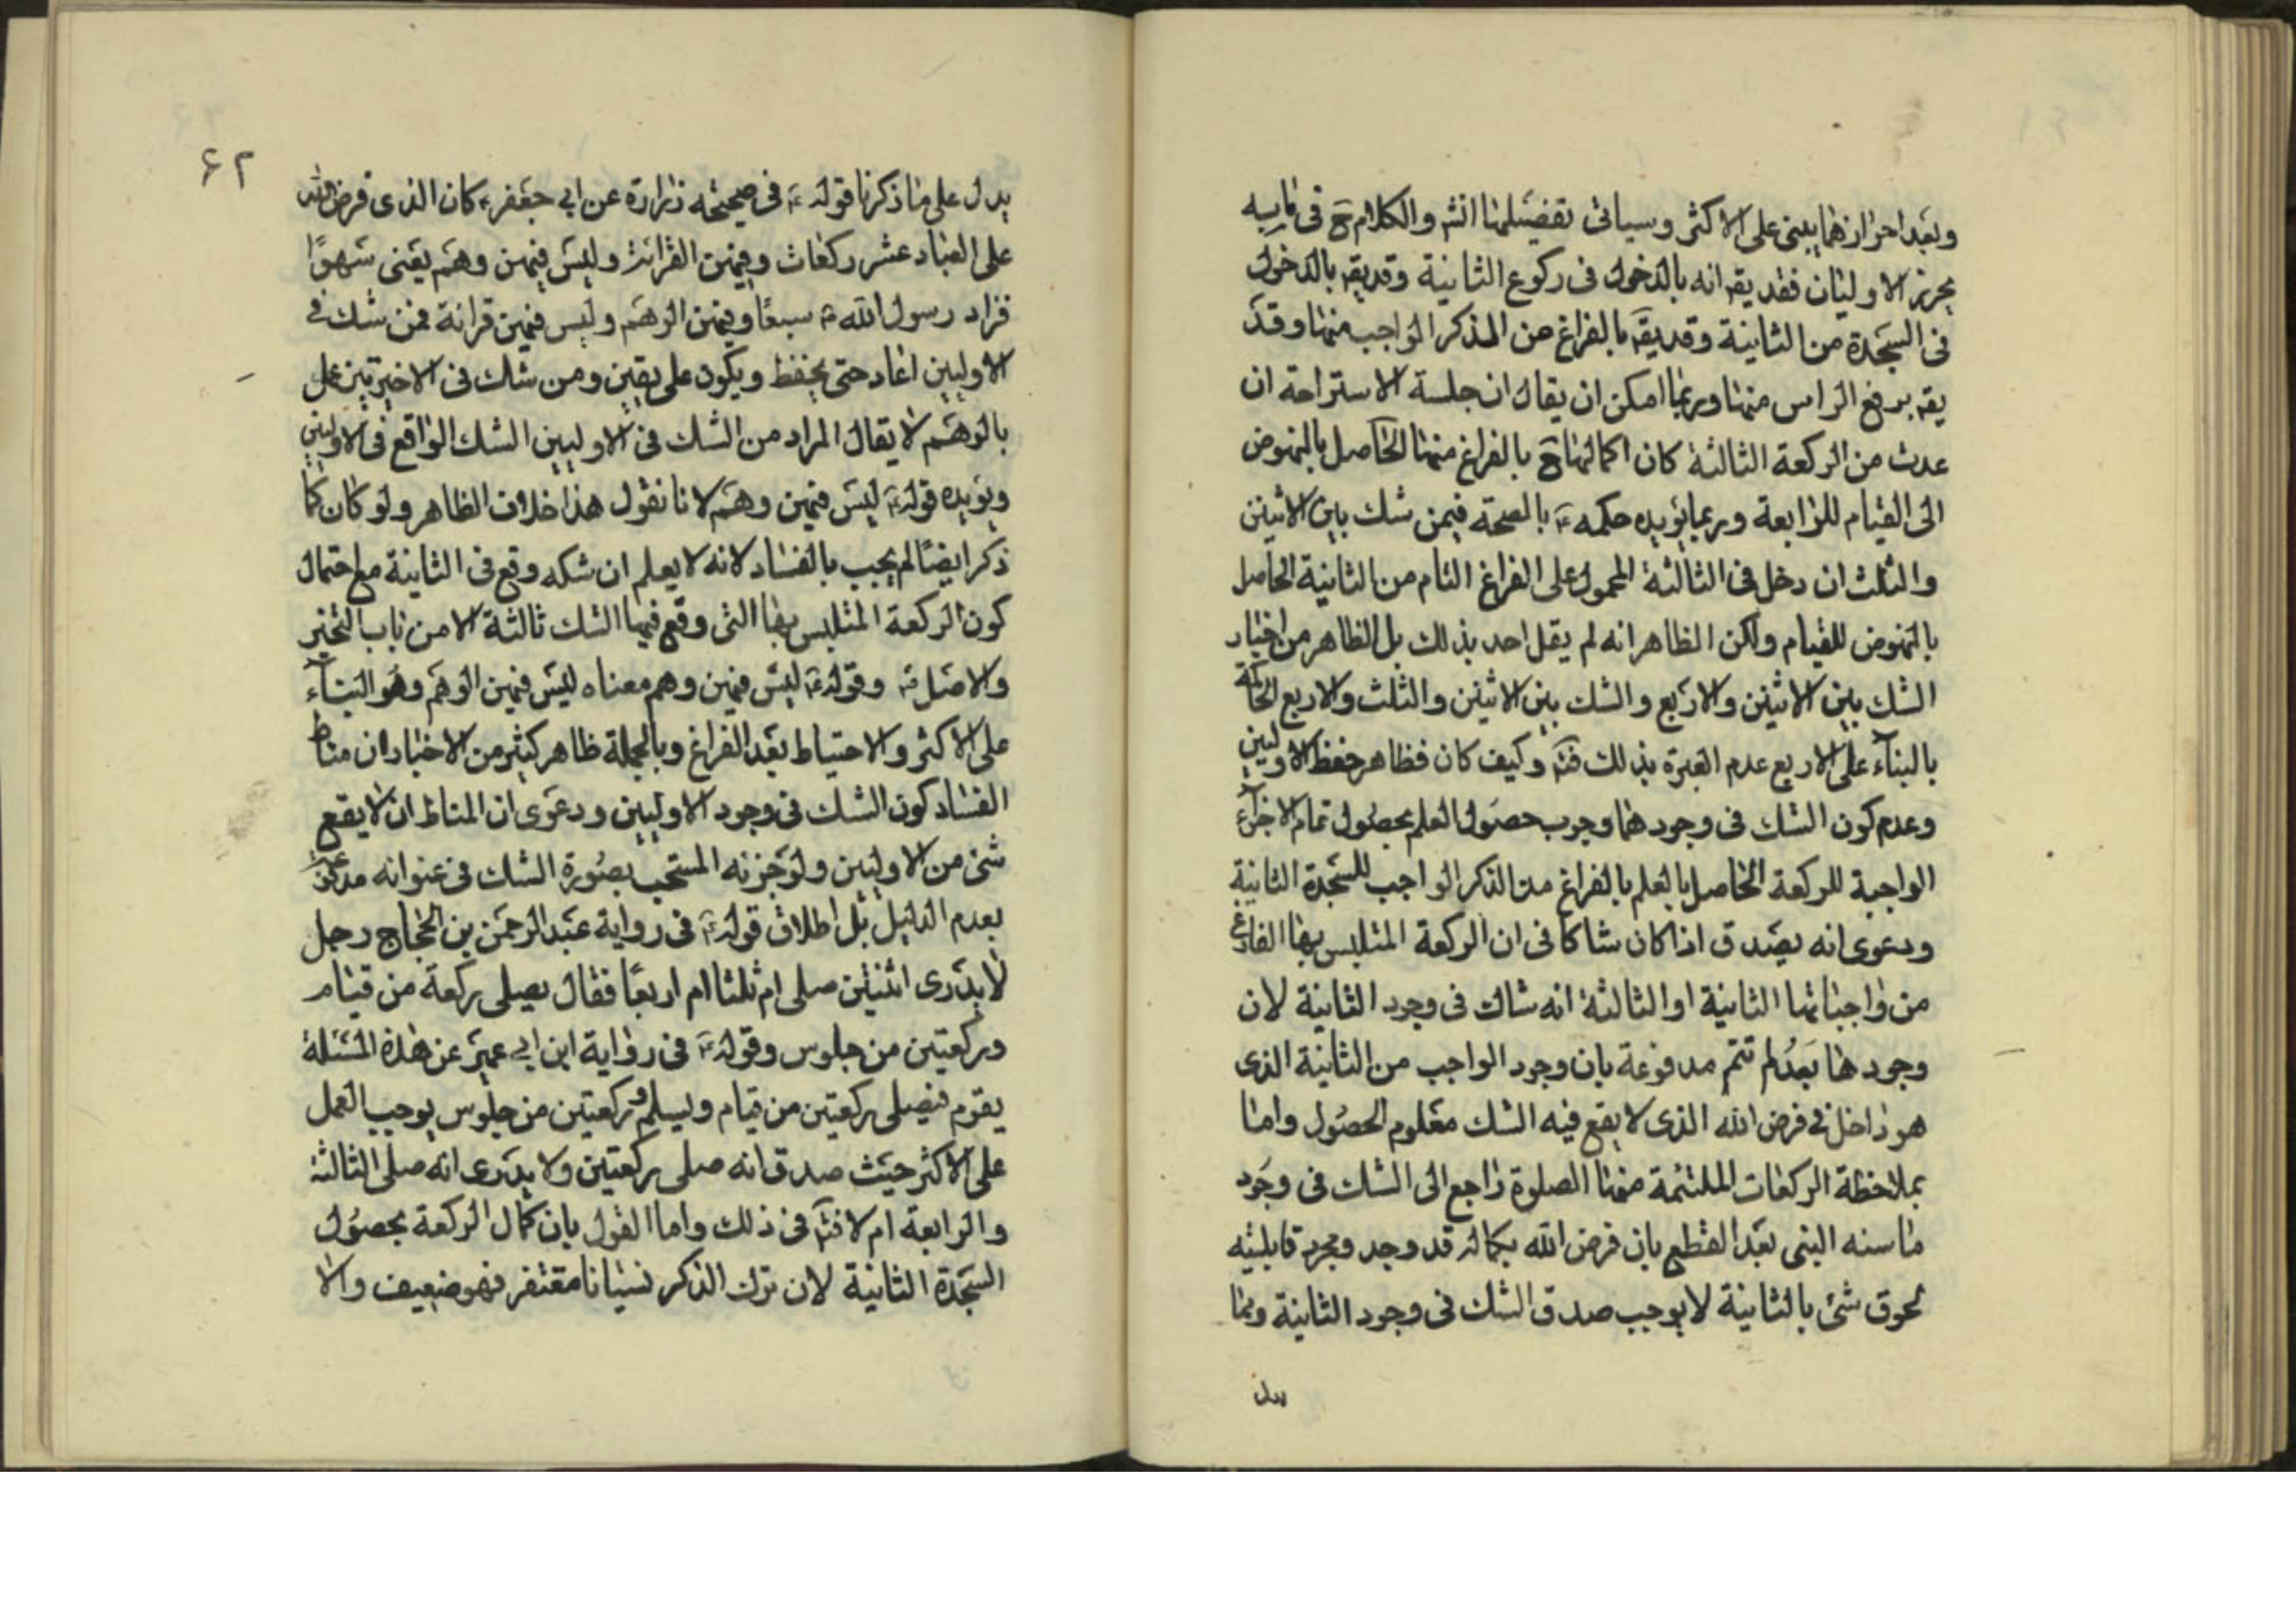 وبعد احرازهما يبنى على الاكثر وسياتى تفضيلها انشه والكلام ح فى ما به
يحرز الاوليتان فقد يقه انه بالدخول فى ركوع الثانية وقديقه بالدخول
فى السجدة من الثانية وقديقه بالفراغ من الذكر الواجب منها وقد
يقه برفع الراس منها وربما امكن ان يقال ان جلسة الاستراحة ان
عدت من الركعة الثالثة كان اكمالها ح بالفراغ منها الحاصل بالنهوض
الى القيام للرابعة وربما يؤيده حكمه ع بالصحة فيمن شك بين الاثنين
والثلث ان دخل فى الثالثة المحمول على الفراغ التام من الثانية الحاصل
بالنهوض للقيام ولكن الظاهر انه لم يقل احد بذلك بل الظاهر من اخبار
الشك بين الاثنين والاربع والشك بين الاثنين والثلث والاربع الحاكمة
بالبناء على الاربع عدم العبرة بذلك فته وكيف كان فظاهر حفظ الاوليين
وعدم كون الشك فى وجودهما وجوب حصول العلم بحصول تمام الاجزاء
الواجبة للركعة الحاصل بالعلم بالفراغ من الذكر الواجب للسجدة الثانية
ودعوى انه يصدق اذا كان شاكا فى ان الركعة المتلبس بها الفارغ
من واجباتها الثانية او الثالثة انه شاك فى وجود الثانية لان
وجودها بعد لم تتم مدفوعة بان وجود الواجب من الثانية الذى
هو داخل فى فرض الله الذى لا يقع فيه الشك معلوم الحصول واما
بملاحظة الركعات الملتئمة منها الصلوة راجع الى الشك فى وجود
ما سنه النبى بعد القطع بان فرض الله بكماله قد وجد ومجرد قابليته
لحوق شئ بالثانية لا يوجب صدق الشك فى وجود الثانية ومما
يدل
۶۲
يدل على ما ذكرنا قوله ع فى صحيحه زرارة عن ابى جعفر ع كان الذى فرض الله
على العباد عشر ركعات وفيهن القرائة وليس فيهن وهم يعنى سهوًا
فزاد رسول الله ص سبعًا وفيهن الوهم وليس فيهن قرائة فمن شك فى
الاوليين اعاد حتى يحفظ ويكون على يقين ومن شك فى الاخيرتين عمل
بالوهم لا يقال المراد من الشك فى الاوليين الشك الواقع فى الاوليين
ويؤيده قوله ع ليس فيهن وهم لانا نقول هذا خلاف الظاهر ولو كان كما
ذكر ايضًا لم يجب بالفساد لانه لا يعلم ان شكه وقع فى الثانية مع احتمال
كون الركعة المتلبس بها التى وقع فيها الشك ثالثة الا من باب التخير
والاصل فته وقوله ع ليس فيهن وهم معناه ليس فيهن الوهم وهو البناء
على الاكثر والاحتياط بعد الفراغ وبالجملة ظاهر كثير من الاخبار ان مناط
الفساد كون الشك فى وجود الاوليين ودعوى ان المناط ان لا يقع
شئ من الاوليين ولو جزئه المستحب بصورة الشك فى عنوانه مدفوعة
بعدم الدليل بل اطلاق قوله ع فى رواية عبد الرحمن بن الحجاج رجل
لا يدرى اثنتين صلى ام ثلثا ام اربعًا فقال يصلى ركعة من قيام
وركعتين من جلوس وقوله ع فى رواية ابن ابى عمير عن هذه المسئلة
يقوم فيصلى ركعتين من قيام ويسلم وركعتين من جلوس يوجب العمل
على الاكثر حيث صدق انه صلى ركعتين ولا يدرى انه صلى الثالثة
والرابعة ام لا فته فى ذلك واما القول بان كمال الركعة بحصول
السجدة الثانية لان ترك الذكر نسيانا مغتفر فهو ضعيف والا